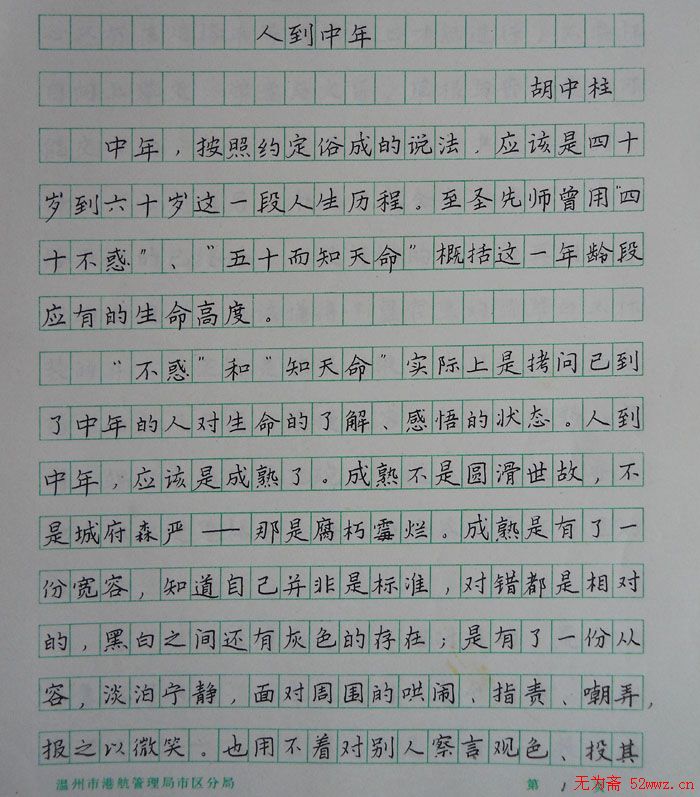 人到中年
胡中柱
中年，按照约定俗成的说法，应该是四十
岁到六十岁这一段人生历程。至圣先师曾用“四
十不惑”、“五十而知天命”概括这一年龄段
应有的生命高度。
“不惑”和“知天命”实际上是拷问已到
了中年的人对生命的了解、感悟的状态。人到
中年，应该是成熟了。成熟不是圆滑世故，不
是城府森严——那是腐朽霉烂。成熟是有了一
份宽容，知道自己并非是标准，对错都是相对
的，黑白之间还有灰色的存在；是有了一份从
容，淡泊宁静，面对周围的哄闹、指责、嘲弄，
报之以微笑。也用不着对别人察言观色、投其
温州市港航管理局市区分局 第 1
无为斋 52wwz.cn